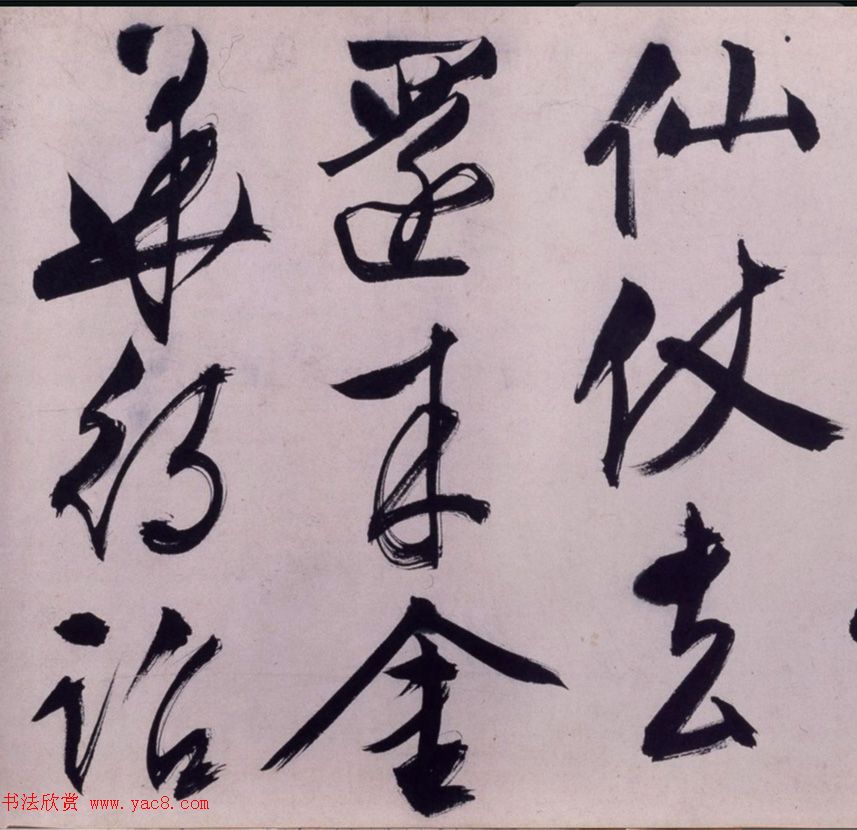 仙仗去
還来金
華待詔
书法欣赏 www.yac8.com